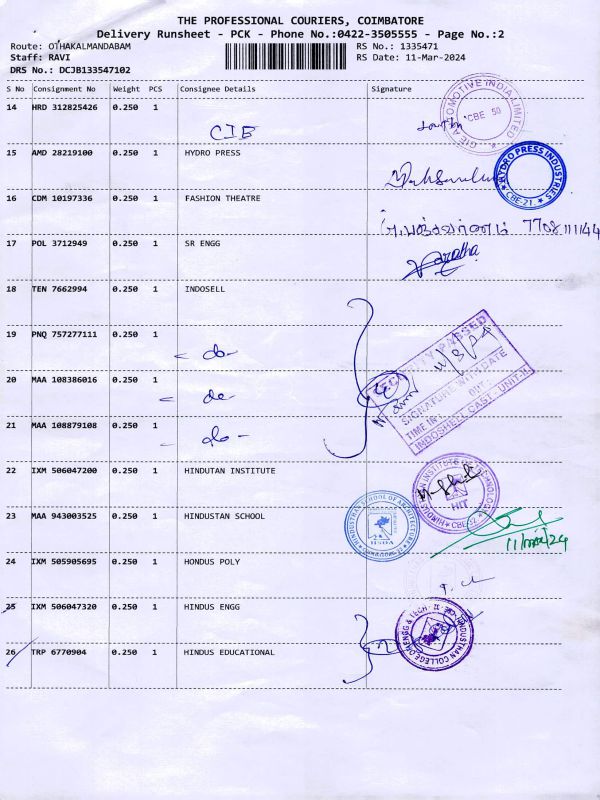 THE PROFESSIONAL COURIERS, COIMBATORE
Delivery Runsheet - PCK - Phone No.:0422-3505555 - Page No.:2
Route: OTHAKALMANDABAM RS No.: 1335471
Staff: RAVI RS Date: 11-Mar-2024
DRS No.: DCJB133547102
S No Consignment No Weight PCS Consignee Details Signature
14 HRD 312825426 0.250 1
CIE
CBE 50
15 AMD 28219100 0.250 1 HYDRO PRESS
HYDRO PRESS INDUSTRIES
CBE-21.
16 CDM 10197336 0.250 1 FASHION THEATRE
7708111144
17 POL 3712949 0.250 1 SR ENGG
18 TEN 7662994 0.250 1 INDOSELL
19 PNQ 757277111 0.250 1
- do -
20 MAA 108386016 0.250 1
- do
21 MAA 108879108 0.250 1
- do -
SECURITY PASSED
11/3/24
SIGNATURE WITH DATE
TIME IN: OUT
INDOSHELL CAST. UNIT-II
22 IXM 506047200 0.250 1 HINDUTAN INSTITUTE
HIT
23 MAA 943003525 0.250 1 HINDUSTAN SCHOOL
HINDUSTHAN SCHOOL OF ARCHITECTURE
HSOA
11/mar/24
24 IXM 505905695 0.250 1 HONDUS POLY
25 IXM 506047320 0.250 1 HINDUS ENGG
26 TRP 6770904 0.250 1 HINDUS EDUCATIONAL